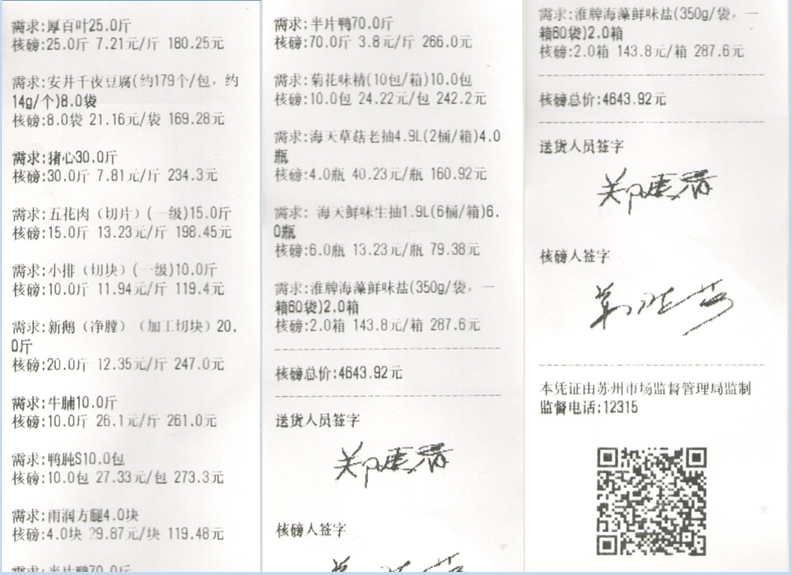 需求:厚百叶25.0斤
核磅:25.0斤 7.21元/斤 180.25元
需求:安井千夜豆腐(约179个/包，约
14g/个)8.0袋
核磅:8.0袋 21.16元/袋 169.28元
需求:猪心30.0斤
核磅:30.0斤 7.81元/斤 234.3元
需求:五花肉（切片）(一级)15.0斤
核磅:15.0斤 13.23元/斤 198.45元
需求:小排（切块）(一级)10.0斤
核磅:10.0斤 11.94元/斤 119.4元
需求:新鹅（净膛）（加工切块）20.
0斤
核磅:20.0斤 12.35元/斤 247.0元
需求:牛腩10.0斤
核磅:10.0斤 26.1元/斤 261.0元
需求:鸭肫S10.0包
核磅:10.0包 27.33元/包 273.3元
需求:雨润方腿4.0块
核磅:4.0块 29.87元/块 119.48元
需求:半片鸭70.0斤
需求:半片鸭70.0斤
核磅:70.0斤 3.8元/斤 266.0元
需求:菊花味精(10包/箱)10.0包
核磅:10.0包 24.22元/包 242.2元
需求:海天草菇老抽4.9L(2桶/箱)4.0
瓶
核磅:4.0瓶 40.23元/瓶 160.92元
需求: 海天鲜味生抽1.9L(6桶/箱)6.
0瓶
核磅:6.0瓶 13.23元/瓶 79.38元
需求:淮牌海藻鲜味盐(350g/袋，一
箱60袋)2.0箱
核磅:2.0箱 143.8元/箱 287.6元
核磅总价:4643.92元
送货人员签字
核磅人签字
需求:淮牌海藻鲜味盐(350g/袋，一
箱60袋)2.0箱
核磅:2.0箱 143.8元/箱 287.6元
核磅总价:4643.92元
送货人员签字
核磅人签字
本凭证由苏州市场监督管理局监制
监督电话:12315